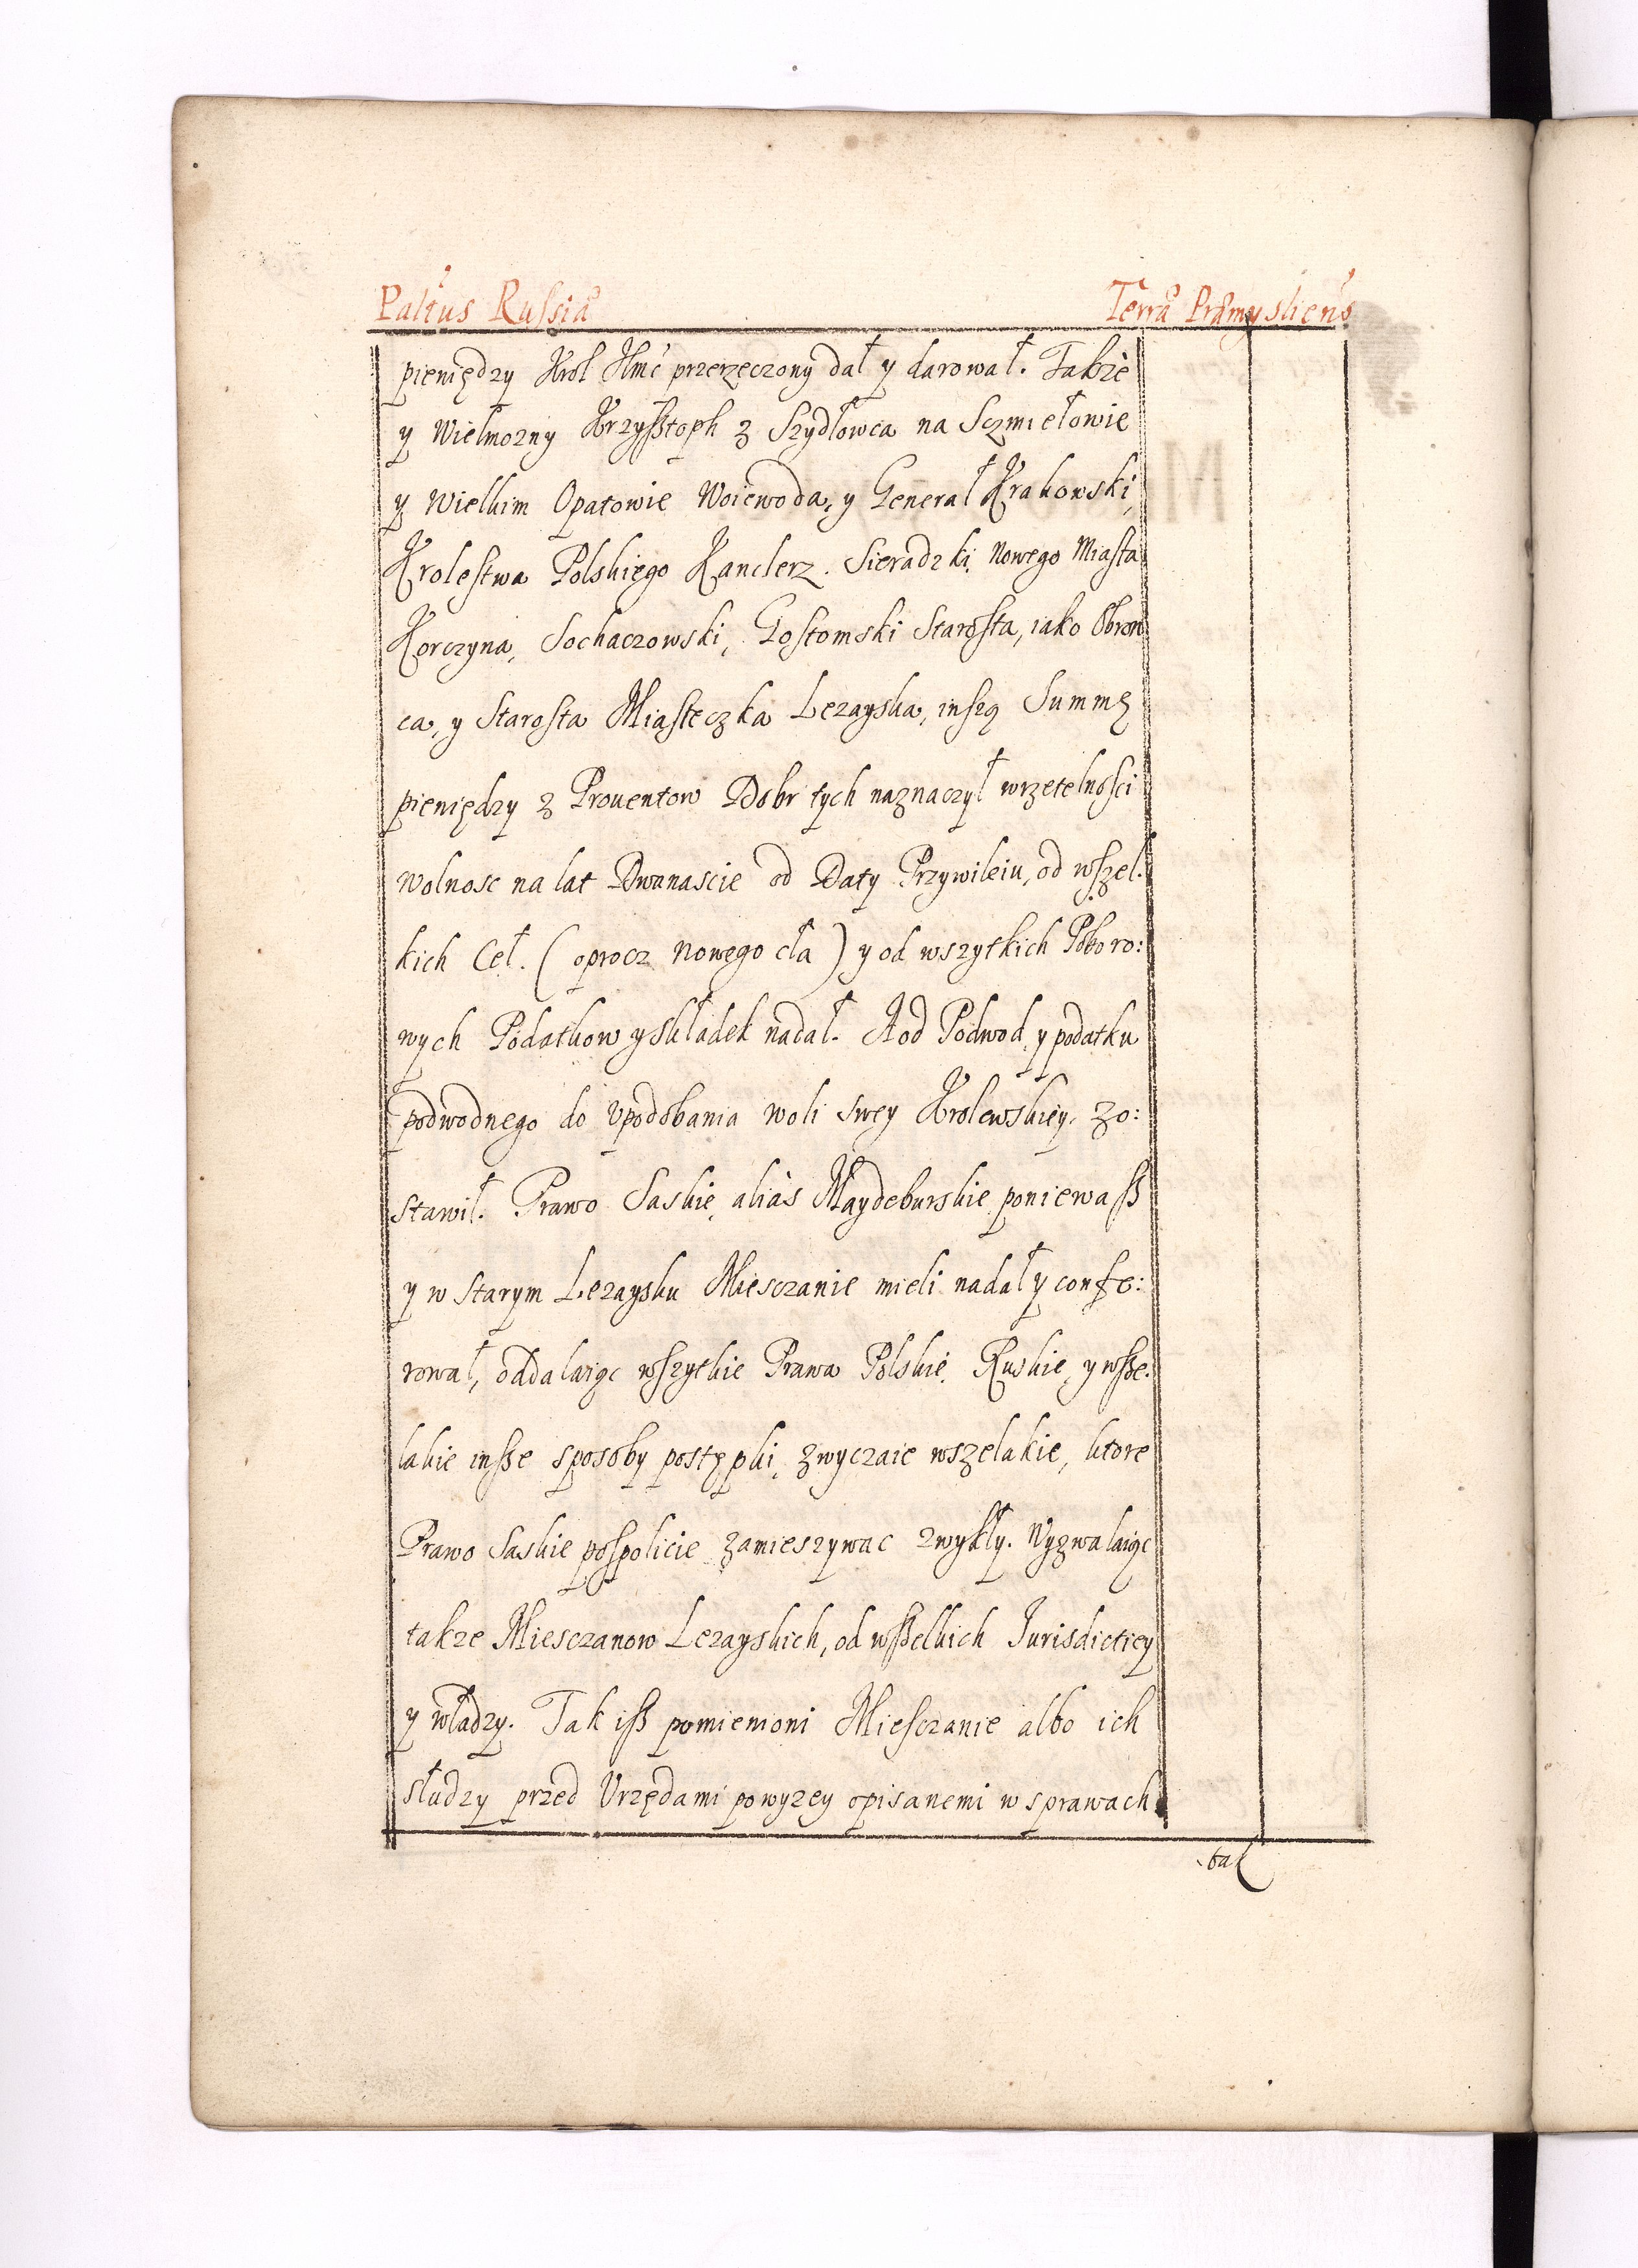 Paltus Russiæ
Terræ Præmysliens
pieniędzy Krol JMć przerzeczony dał y darował. Takze
y Wielmozny Krzyßtoph z Szydłowca na Sczmiełowie
y Wielkim Opatowie Woiewoda, y Generał Krakowski,
Krolestwa Polskiego Kanclerz. Sieradzki, Nowego Miasta
Korczyna, Sochaczowski, Gostomski Starosta, iako Obron
ca, y Starosta Miasteczka Lezayska, inszą Summę
pieniędzy z Prouentow Dobr tych naznaczył wrzetelności
wolnosc na lat Dwanascie od Daty Przywileiu, od wszel.
kich Ceł. (oprocz Nowego cła) y od wszytkich Poboro:
wych Podatkow y składek nadał. A od Podwod, y podatku
podwodnego do Vpodobania woli swey Krolewskiey, zo:
stawił. Prawo Saskie, alias Maydeburskie poniewaß
y w Starym Lezaysku Miesczanie mieli nadał y confe:
rował, oddalaiąc wszytkie Prawa Polskie, Ruskie, y wße.
lakie inße sposoby postępki, zwyczaie wszelakie, ktore
Prawo Saskie pospolicie zamieszywac zwykły. Wyzwalaiąc
takze Miesczanow Lezayskich, od wßelkich Jurisdictiey
y władzy. Tak iß pomienioni Miesczanie albo ich
słudzy przed Vrzędami powyzey opisanemi w sprawach